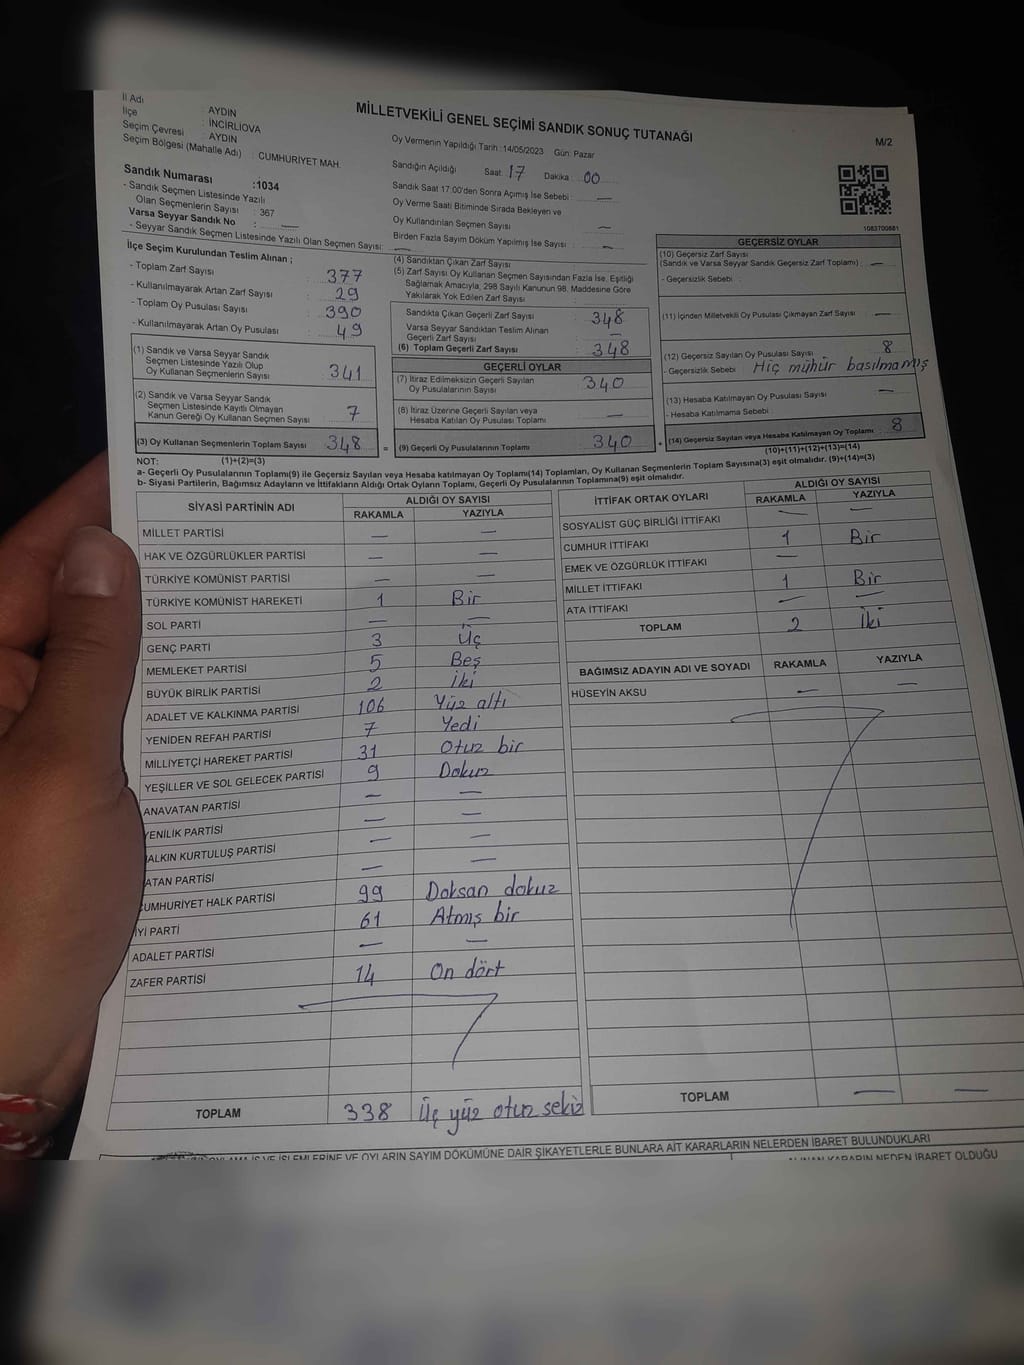 MİLLETVEKİLİ GENEL SEÇİMİ SANDIK SONUÇ TUTANAĞI
M/2
İl Adı : AYDIN
İlçe : İNCİRLİOVA
Seçim Çevresi : AYDIN
Seçim Bölgesi (Mahalle Adı) : CUMHURİYET MAH.
Sandık Numarası :1034
- Sandık Seçmen Listesinde Yazılı
Olan Seçmenlerin Sayısı : 367
Varsa Seyyar Sandık No : —
- Seyyar Sandık Seçmen Listesinde Yazılı Olan Seçmen Sayısı: —
Oy Vermenin Yapıldığı Tarih : 14/05/2023 Gün: Pazar
Sandığın Açıldığı Saat: 17 Dakika : 00
Sandık Saat 17:00'den Sonra Açılmış İse Sebebi : —
Oy Verme Saati Bitiminde Sırada Bekleyen ve
Oy Kullandırılan Seçmen Sayısı : —
Birden Fazla Sayım Döküm Yapılmış İse Sayısı : —
1083700881
İlçe Seçim Kurulundan Teslim Alınan ;
- Toplam Zarf Sayısı : 377
- Kullanılmayarak Artan Zarf Sayısı : 29
- Toplam Oy Pusulası Sayısı : 390
- Kullanılmayarak Artan Oy Pusulası : 49
(1) Sandık ve Varsa Seyyar Sandık
Seçmen Listesinde Yazılı Olup
Oy Kullanan Seçmenlerin Sayısı : 341
(2) Sandık ve Varsa Seyyar Sandık
Seçmen Listesinde Kayıtlı Olmayan
Kanun Gereği Oy Kullanan Seçmen Sayısı : 7
(3) Oy Kullanan Seçmenlerin Toplam Sayısı : 348
(4) Sandıktan Çıkan Zarf Sayısı :
(5) Zarf Sayısı Oy Kullanan Seçmen Sayısından Fazla İse, Eşitliği
Sağlamak Amacıyla, 298 Sayılı Kanunun 98. Maddesine Göre
Yakılarak Yok Edilen Zarf Sayısı
Sandıkta Çıkan Geçerli Zarf Sayısı : 348
Varsa Seyyar Sandıktan Teslim Alınan
Geçerli Zarf Sayısı : —
(6) Toplam Geçerli Zarf Sayısı : 348
GEÇERLİ OYLAR
(7) İtiraz Edilmeksizin Geçerli Sayılan
Oy Pusulalarının Sayısı : 340
(8) İtiraz Üzerine Geçerli Sayılan veya
Hesaba Katılan Oy Pusulası Toplamı : —
= (9) Geçerli Oy Pusulalarının Toplamı : 340 +
GEÇERSİZ OYLAR
(10) Geçersiz Zarf Sayısı
(Sandık ve Varsa Seyyar Sandık Geçersiz Zarf Toplamı) : —
- Geçersizlik Sebebi :
(11) İçinden Milletvekili Oy Pusulası Çıkmayan Zarf Sayısı : —
(12) Geçersiz Sayılan Oy Pusulası Sayısı : 8
- Geçersizlik Sebebi : Hiç mühür basılmamış
(13) Hesaba Katılmayan Oy Pusulası Sayısı : —
- Hesaba Katılmama Sebebi :
(14) Geçersiz Sayılan veya Hesaba Katılmayan Oy Toplamı : 8
(10)+(11)+(12)+(13)=(14)
NOT: (1)+(2)=(3)
a- Geçerli Oy Pusulalarının Toplamı(9) ile Geçersiz Sayılan veya Hesaba katılmayan Oy Toplamı(14) Toplamları, Oy Kullanan Seçmenlerin Toplam Sayısına(3) eşit olmalıdır. (9)+(14)=(3)
b- Siyasi Partilerin, Bağımsız Adayların ve İttifakların Aldığı Ortak Oyların Toplamı, Geçerli Oy Pusulalarının Toplamına(9) eşit olmalıdır.
SİYASİ PARTİNİN ADI ALDIĞI OY SAYISI
RAKAMLA YAZIYLA
MİLLET PARTİSİ — —
HAK VE ÖZGÜRLÜKLER PARTİSİ — —
TÜRKİYE KOMÜNİST PARTİSİ — —
TÜRKİYE KOMÜNİST HAREKETİ 1 Bir
SOL PARTİ — —
GENÇ PARTİ 3 Üç
MEMLEKET PARTİSİ 5 Beş
BÜYÜK BİRLİK PARTİSİ 2 İki
ADALET VE KALKINMA PARTİSİ 106 Yüz altı
YENİDEN REFAH PARTİSİ 7 Yedi
MİLLİYETÇİ HAREKET PARTİSİ 31 Otuz bir
YEŞİLLER VE SOL GELECEK PARTİSİ 9 Dokuz
ANAVATAN PARTİSİ — —
YENİLİK PARTİSİ — —
ALKIN KURTULUŞ PARTİSİ — —
ATAN PARTİSİ — —
CUMHURİYET HALK PARTİSİ 99 Doksan dokuz
İYİ PARTİ 61 Atmış bir
ADALET PARTİSİ — —
ZAFER PARTİSİ 14 On dört
TOPLAM 338 Üç yüz otuz sekiz
İTTİFAK ORTAK OYLARI ALDIĞI OY SAYISI
RAKAMLA YAZIYLA
SOSYALİST GÜÇ BİRLİĞİ İTTİFAKI — —
CUMHUR İTTİFAKI 1 Bir
EMEK VE ÖZGÜRLÜK İTTİFAKI —
MİLLET İTTİFAKI 1 Bir
ATA İTTİFAKI — —
TOPLAM 2 İki
BAĞIMSIZ ADAYIN ADI VE SOYADI RAKAMLA YAZIYLA
HÜSEYİN AKSU — —
TOPLAM — —
İŞLEMLERİNE VE OYLARIN SAYIM DÖKÜMÜNE DAİR ŞİKAYETLERLE BUNLARA AİT KARARLARIN NELERDEN İBARET BULUNDUKLARI
ALINAN KARARIN NEDEN İBARET OLDUĞU